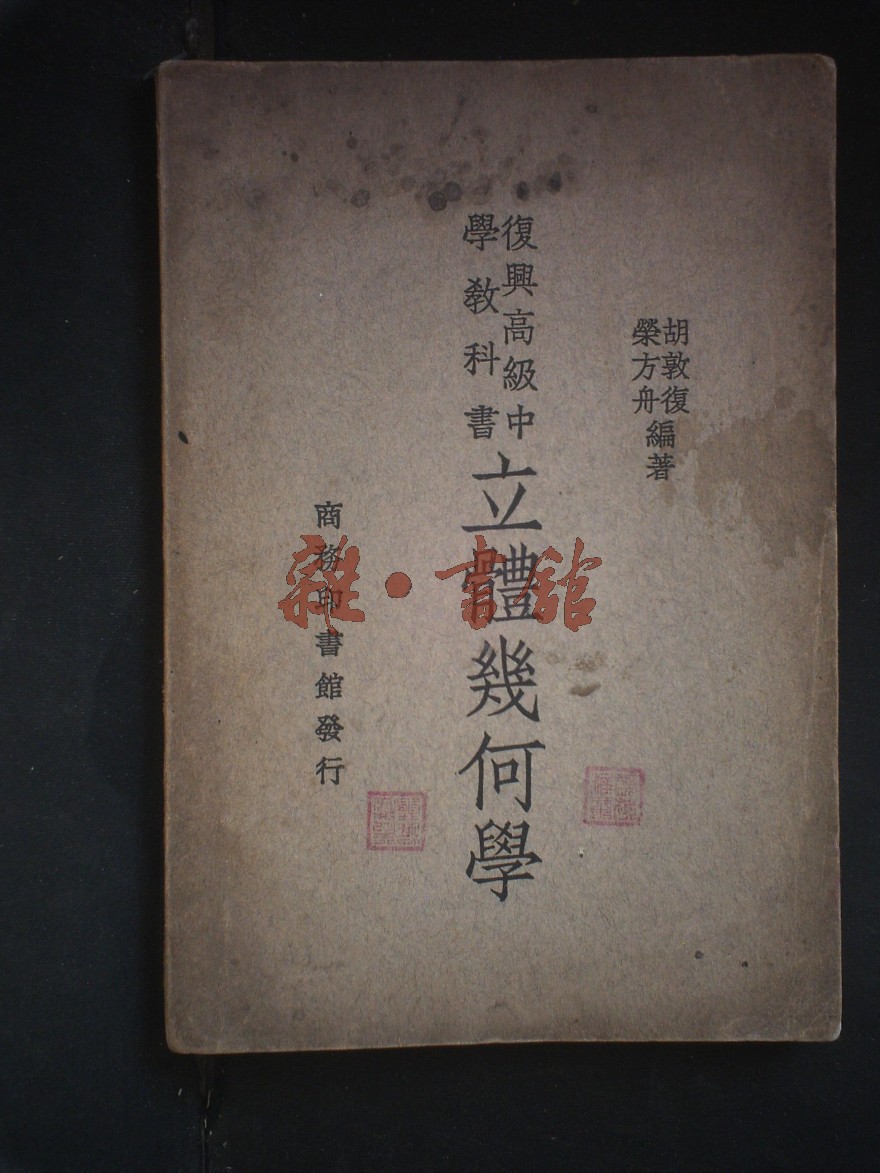 胡敦復
榮方舟
編著
復興高級中
學教科書
立體幾何學
商務印書館發行
雜·書館